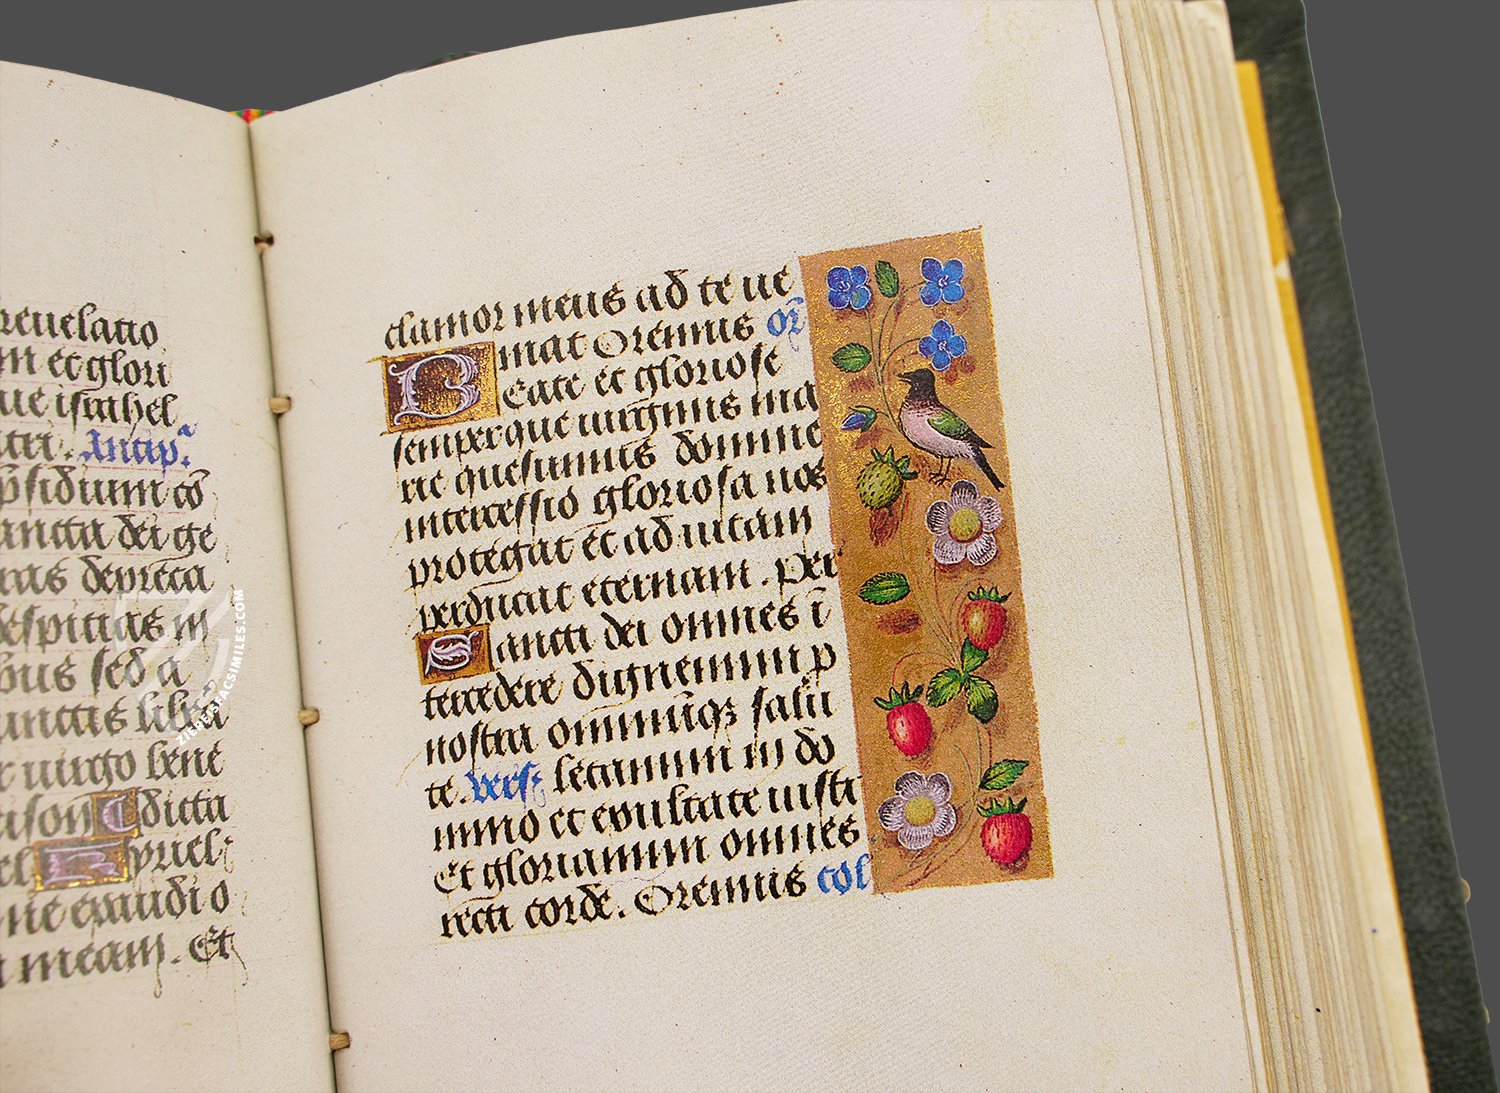 reuelatio
m et glori
ue israhel
Antip.
psidium co
ancta dei ge
ras depreca
despicias in
bus sed a
unctis libera
r uirgo bene
ison dicta
el kyriel
ne exaudi o
meam. Et
ZIEREIS FACSIMILES.COM
clamor meus ad te ue
niat Oremus or
Beate et gloriose
semperque uirginis ma
rie quesumus domine
intercessio gloriosa nos
protegat et ad uitam
perducat eternam. per
Sancti dei omnes i
tercedere dignemini p
nostra omniuqz salu
te. vers letamini in do
mino et exultate iusti
Et gloriamini omnes
recti corde. Oremus col